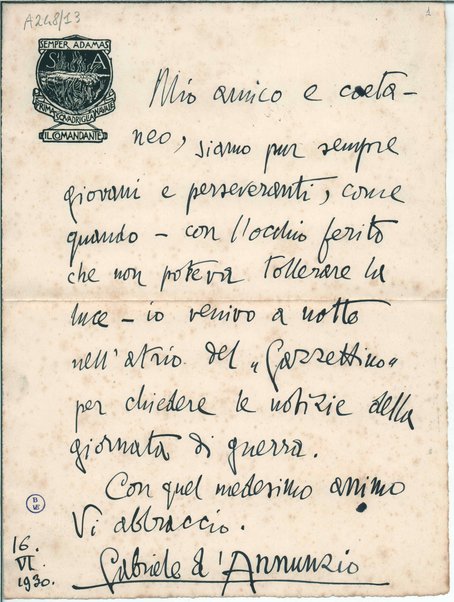 A248/13
1
SEMPER ADAMAS
S A
PRIMA SQUADRIGLIA NAVALE
IL COMANDANTE
Mio amico e coeta-
neo, siamo pur sempre
giovani e perseveranti, come
quando – con l'occhio ferito
che non poteva tollerare la
luce – io venivo a notte
nell'atrio del "Gazzettino"
per chiedere le notizie della
giornata di guerra.
Con quel medesimo animo
Vi abbraccio.
Gabriele d'Annunzio
16.
VI.
1930.